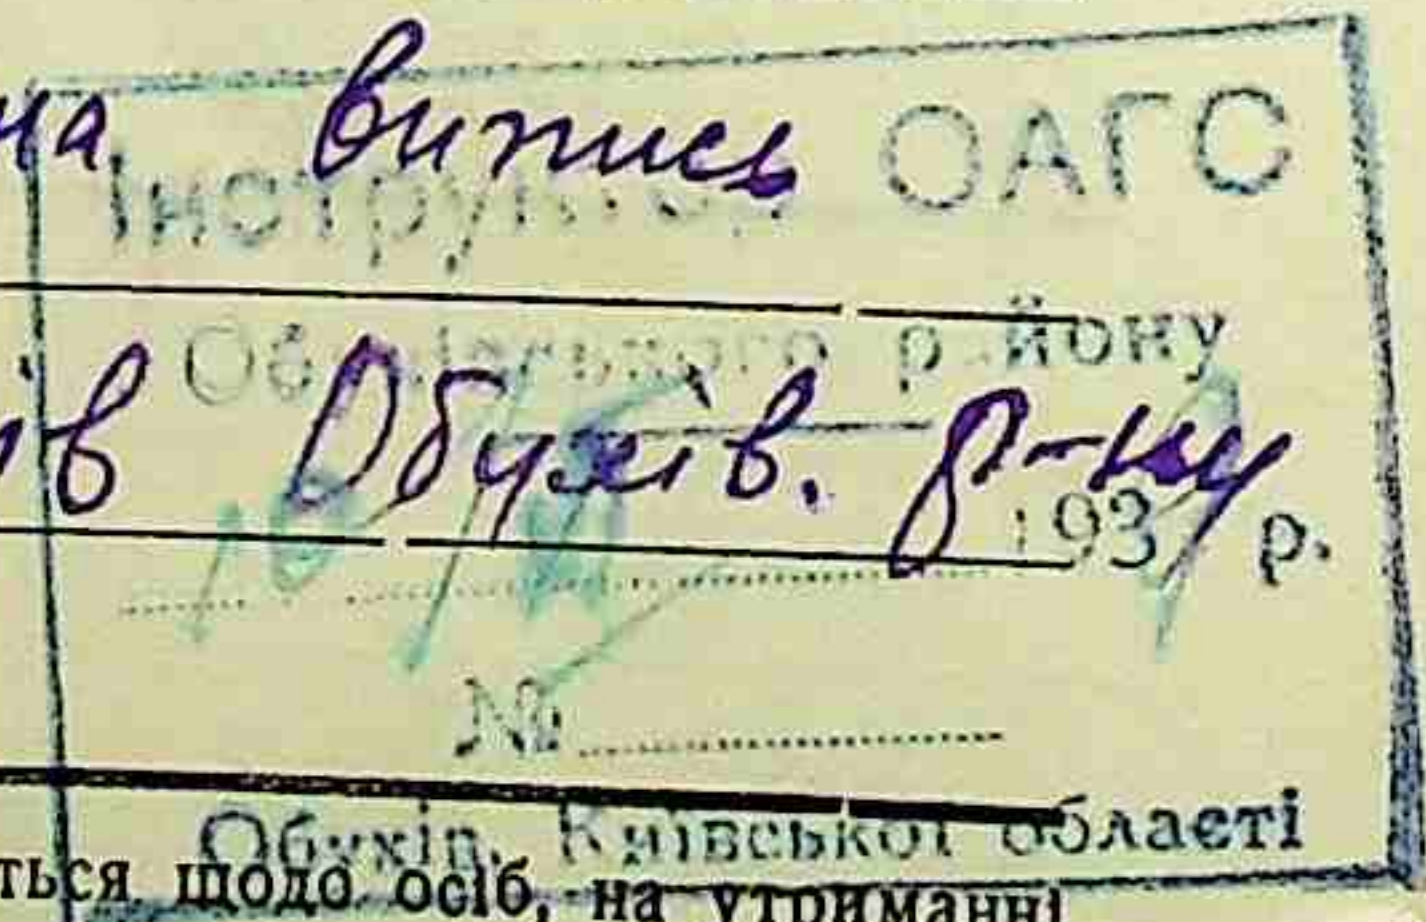 на випись
Інструктор ОАГС
Обухівського району
ів Обухів. р-ну
193 р.
№
Обухів, Київської області
ться щодо осіб, на утриманні